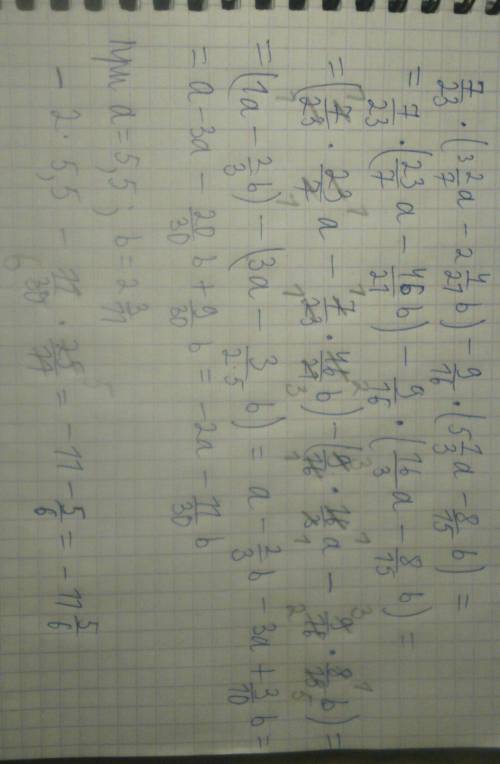 7/23 · (3 2/7 a - 2 4/21 b) - 9/16 · (5 1/3 a - 8/15 b) =
= 7/23 · (23/7 a - 46/21 b) - 9/16 · (16/3 a - 8/15 b) =
= (7/23 · 23/7 a - 7/23 · 46/21 b) - (9/16 · 16/3 a - 9/16 · 8/15 b) =
= (1a - 2/3 b) - (3a - 3/2·5 b) = a - 2/3 b - 3a + 3/10 b =
= a - 3a - 20/30 b + 9/30 b = -2a - 11/30 b
При a = 5,5; b = 2 3/11
- 2 · 5,5 - 11/30 · 25/11 = -11 - 5/6 = -11 5/6